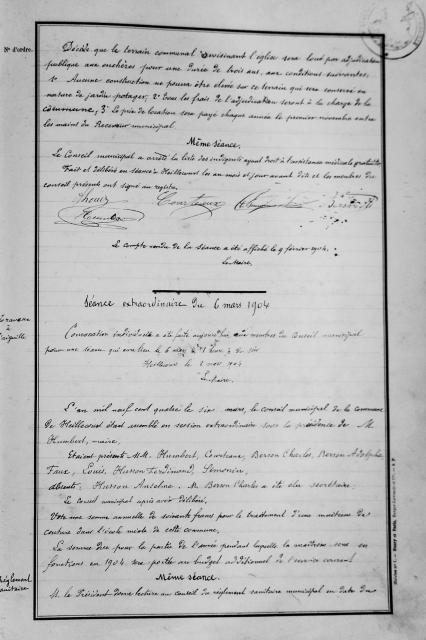 N° d'ordre.
Décide que le terrain communal avoisinant l'église sera loué par adjudication
publique aux enchères pour une durée de trois ans, aux conditions suivantes,
1° Aucune construction ne pourra être élevée sur ce terrain qui sera conservé en
nature de jardin potager; 2° Tous les frais de l'adjudication seront à la charge de la
commune; 3° Le prix de location sera payé chaque année le premier novembre entre
les mains du Receveur municipal.
Même séance.
Le Conseil municipal a arrêté la liste des indigents ayant droit à l'assistance médicale gratuite
Fait et délibéré en séance à Heillecourt les an mois et jour avant dits et les membres du
conseil présents ont signé au registre.
Le compte rendu de la séance a été affiché le 9 février 1904.
Le Maire,
Séance extraordinaire du 6 mars 1904
Convocation individuelle a été faite aujourd'hui aux membres du Conseil municipal
pour une séance qui aura lieu le 6 du soir
Heillecourt le 1904
Le Maire,
Travaux
à
l'aiguille
L'an mil neuf cent quatre le six mars, le conseil municipal de la commune
de Heillecourt étant assemblé en session extraordinaire sous la présidence de M.
Humbert, maire,
Etaient présents M.M. Humbert, Berson Charles, Berson Adolphe
Faux, Louis, Husson Ferdinand,
absents, Husson Anselme. M. Berson Charles a été élu secrétaire.
Le conseil municipal après avoir délibéré,
Vote une somme annuelle de soixante francs pour le traitement d'une maîtresse de
couture dans l'école mixte de cette commune,
La somme due pour la partie de l'année pendant laquelle la maîtresse sera en
fonctions en 1904 sera portée au budget additionnel de l'exercice courant
Même séance.
Règlement
sanitaire
M. le Président donne lecture au conseil du règlement sanitaire municipal en date du